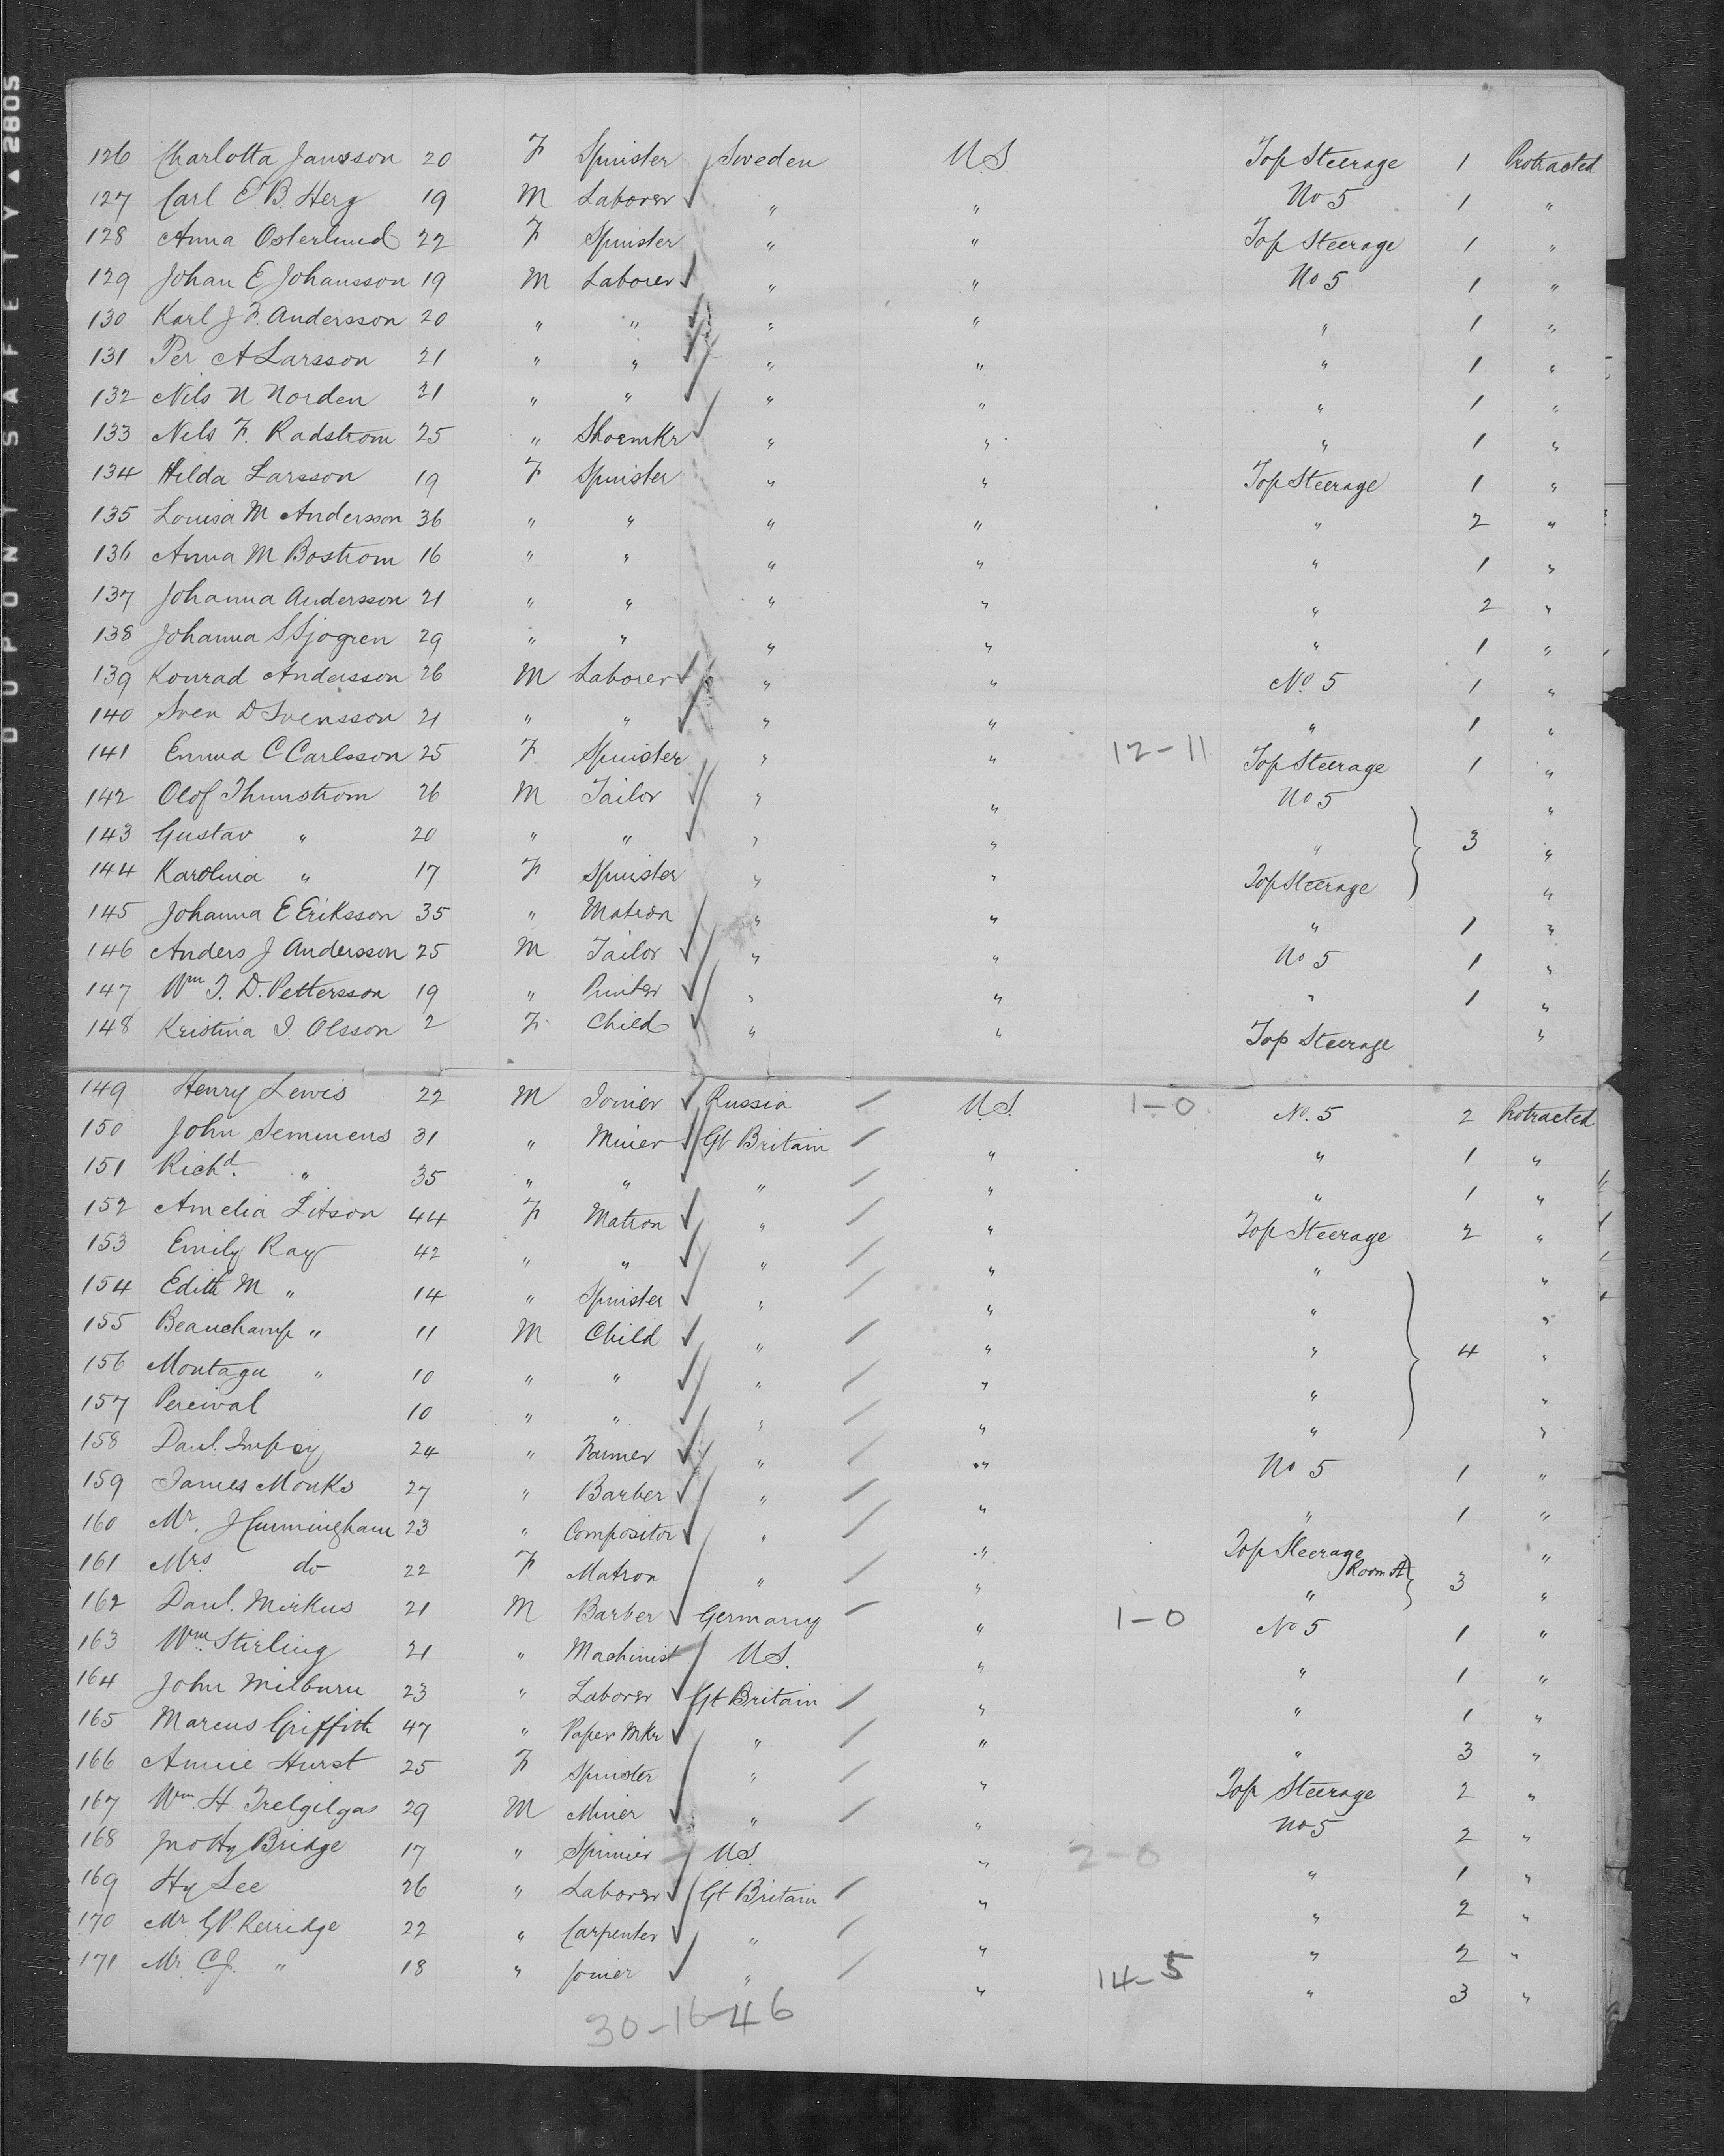 DUPONT SAFETY ▲ 2805
126 Charlotta Jansson 20 F Spinster Sweden U.S. Top Steerage 1 Protracted
127 Carl E. B. Herg 19 M Laborer " " No 5 1 "
128 Anna Osterlund 22 F Spinster " " Top Steerage 1 "
129 Johan E Johansson 19 M Laborer " " No 5 1 "
130 Karl J F. Andersson 20 " " " " " 1 "
131 Per A Larsson 21 " " " " " 1 "
132 Nils N Norden 21 " " " " " 1 "
133 Nels F. Radstrom 25 " Shoemkr " " " 1 "
134 Hilda Larsson 19 F Spinster " " Top Steerage 1 "
135 Louisa M Andersson 36 " " " " " 2 "
136 Anna M Bostrom 16 " " " " " 1 "
137 Johanna Andersson 21 " " " " " 2 "
138 Johanna S Sjogren 29 " " " " " 1 "
139 Konrad Andersson 26 M Laborer " " No. 5 1 "
140 Sven D Svensson 21 " " " " " 1 "
141 Emma C Carlsson 25 F Spinster " " 12-11 Top Steerage 1 "
142 Olof Thunstrom 26 M Tailor " " No 5 "
143 Gustav " 20 " " " " " 3 "
144 Karolina " 17 F Spinster " " Top Steerage "
145 Johanna E Eriksson 35 " Matron " " " 1 "
146 Anders J Andersson 25 M Tailor " " No 5 1 "
147 Wm T. D. Pettersson 19 " Printer " " " 1 "
148 Kristina I. Olsson 2 F Child " " Top Steerage "
149 Henry Lewis 22 M Joiner Russia U.S. 1-0 No. 5 2 Protracted
150 John Semmens 31 " Miner Gt Britain " " 1 "
151 Richd. " 35 " " " " " 1 "
152 Amelia Litson 44 F Matron " " Top Steerage 2 "
153 Emily Ray 42 " " " " " "
154 Edith M " 14 " Spinster " " " "
155 Beauchamp " 11 M Child " " " 4 "
156 Montagu " 10 " " " " " "
157 Percival 10 " " " " " "
158 Danl. Impey 24 " Farmer " " No 5 1 "
159 James Monks 27 " Barber " " " 1 "
160 Mr. J Cunningham 23 " Compositor " " Top Steerage "
161 Mrs. do 22 F Matron " " " Room A 3 "
162 Danl. Mirkus 21 M Barber Germany " 1-0 No 5 1 "
163 Wm. Stirling 21 " Machinist U.S. " " 1 "
164 John Milburn 23 " Laborer Gt Britain " " 1 "
165 Marcus Griffith 47 " Paper Mkr " " " 3 "
166 Annie Hurst 25 F Spinster " " Top Steerage 2 "
167 Wm. H. Trelgilgas 29 M Miner " " No 5 2 "
168 Jno Hy Bridge 17 " Spinner U.S. " 2-0 " 1 "
169 Hy Lee 26 " Laborer Gt Britain " " 2 "
170 Mr G P. Kerridge 22 " Carpenter " " " 2 "
171 Mr. C. J. " 18 " Joiner " " 14-5 " 3 "
30-16-46